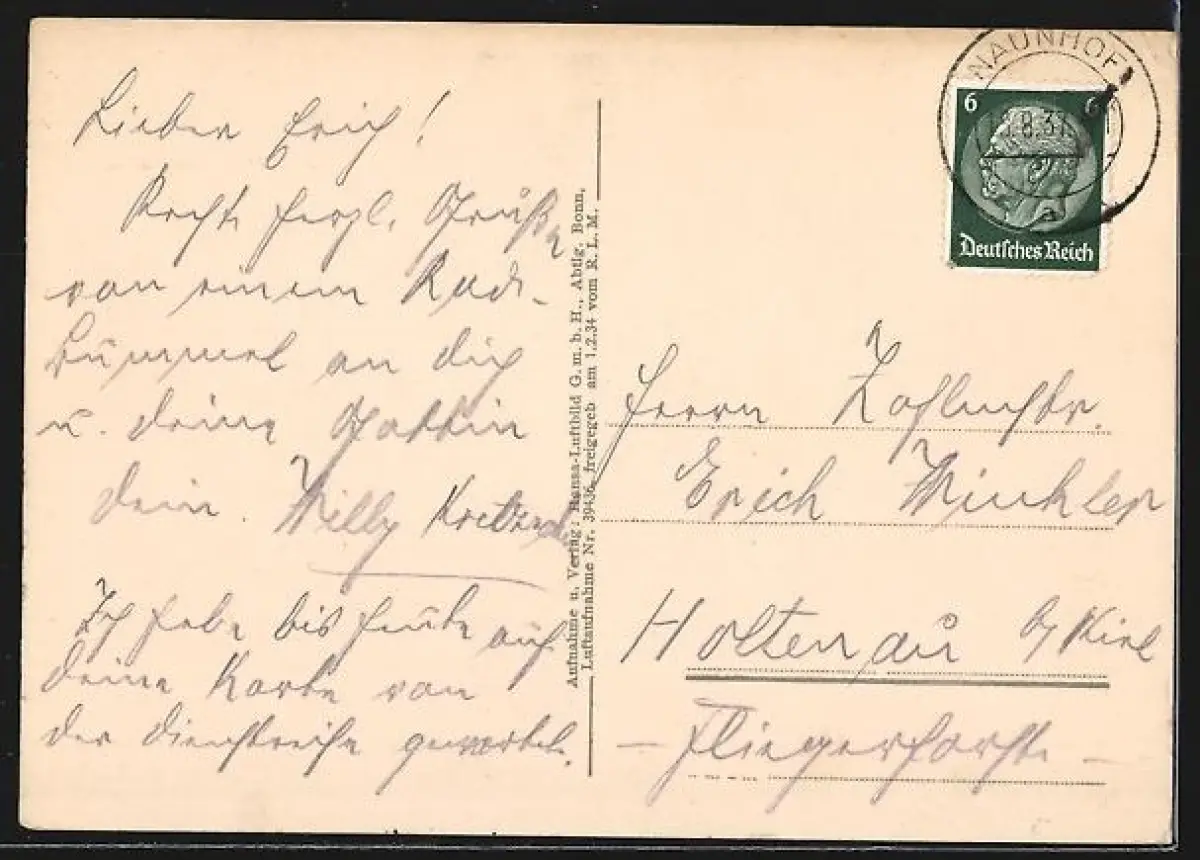 Lieber Erich!
Recht herzl. Grüße
von einem Rad-
bummel an dich
u. deine Gattin
dein. Willy
Ich habe bis heute auf
deine Karte von
der Dienstreise gewartet.
Aufnahme u. Verlag: Hansa-Luftbild G.m.b.H., Abtlg. Bonn.
Luftaufnahme Nr. 39436 freigegeb am 1.2.34 vom R.L.M.
NAUNHOF
8.37
6 6
Deutsches Reich
Herrn Zahlmstr.
Erich Winkler
Holtenau b/Kiel
– Fliegerhorst –